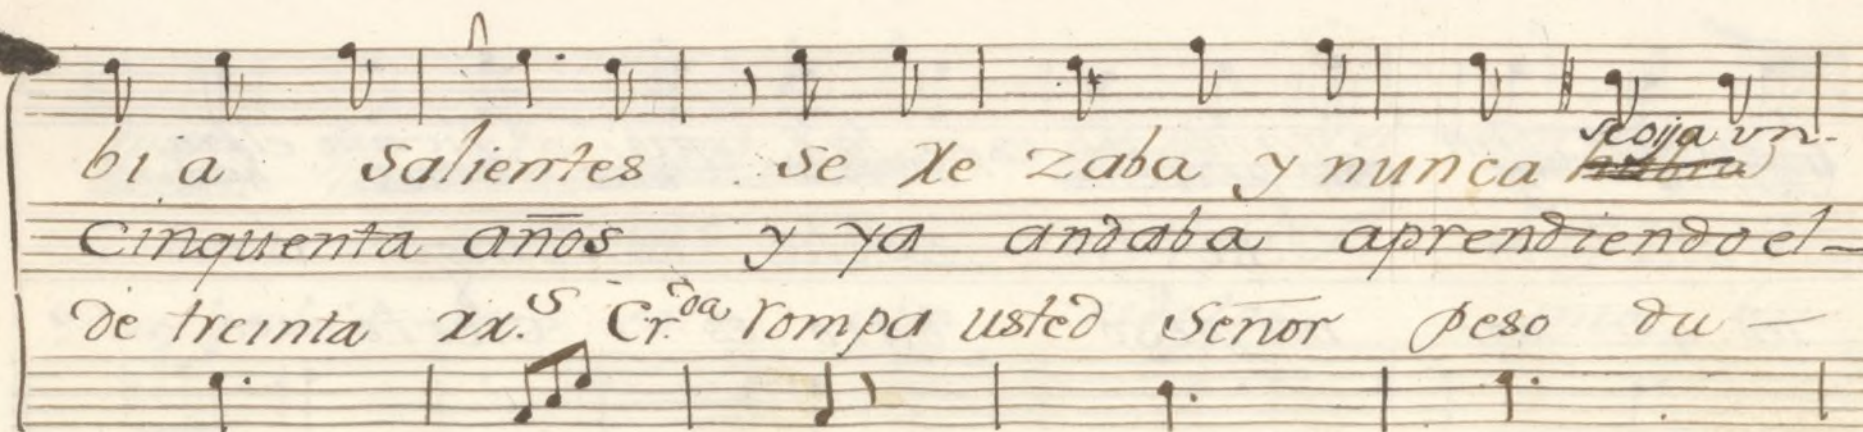 seoija un-
bia salientes se Rezaba y nunca
Cinquenta años y ya andaba aprendiendo el-
de treinta rr.s Cr.da rompa usted Señor peso du-